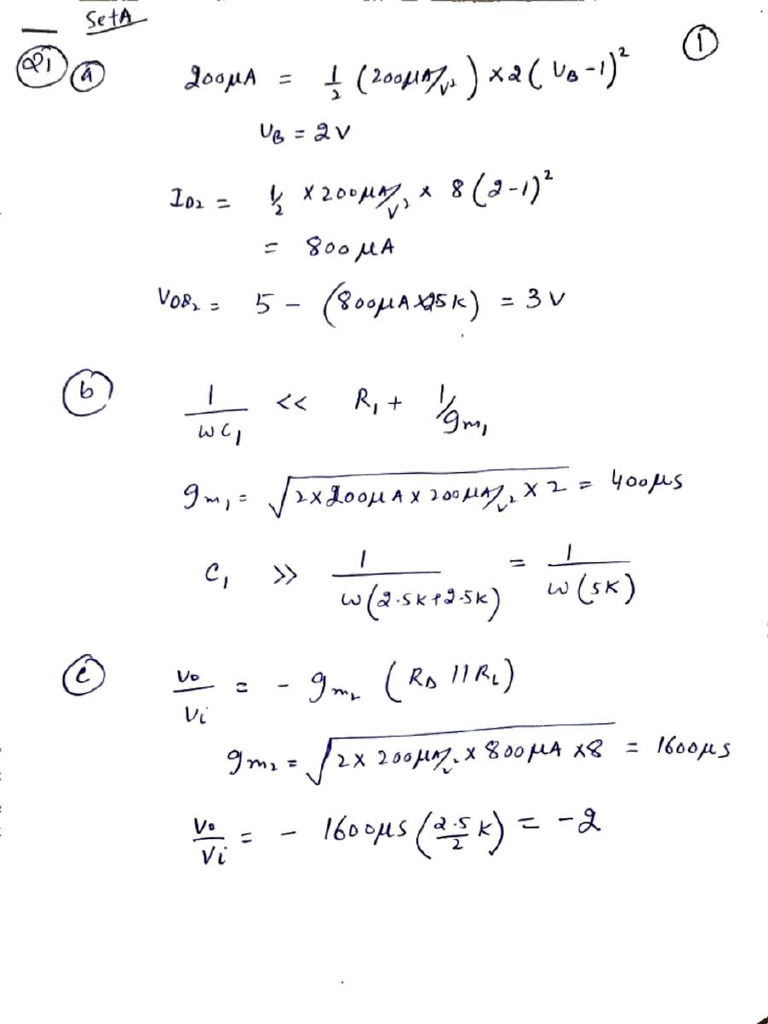 SetA
①
Q1 ⓐ 200μA = 1/2 (200μA/V²) x2 (VB-1)²
VB = 2V
ID2 = 1/2 x 200μA/V² x 8(2-1)²
= 800 μA
VOB2 = 5 - (800μA x 25K) = 3V
ⓑ 1/ωC1 << R1 + 1/gm1
gm1 = √(2x200μA x 200μA/V² x 2) = 400μs
C1 >> 1/ω(2.5K+2.5K) = 1/ω(5K)
ⓒ Vo/Vi = - gm2 (RD || RL)
gm2 = √(2x 200μA/V² x 800μA x8) = 1600μs
Vo/Vi = - 1600μs (2.5/2 K) = -2